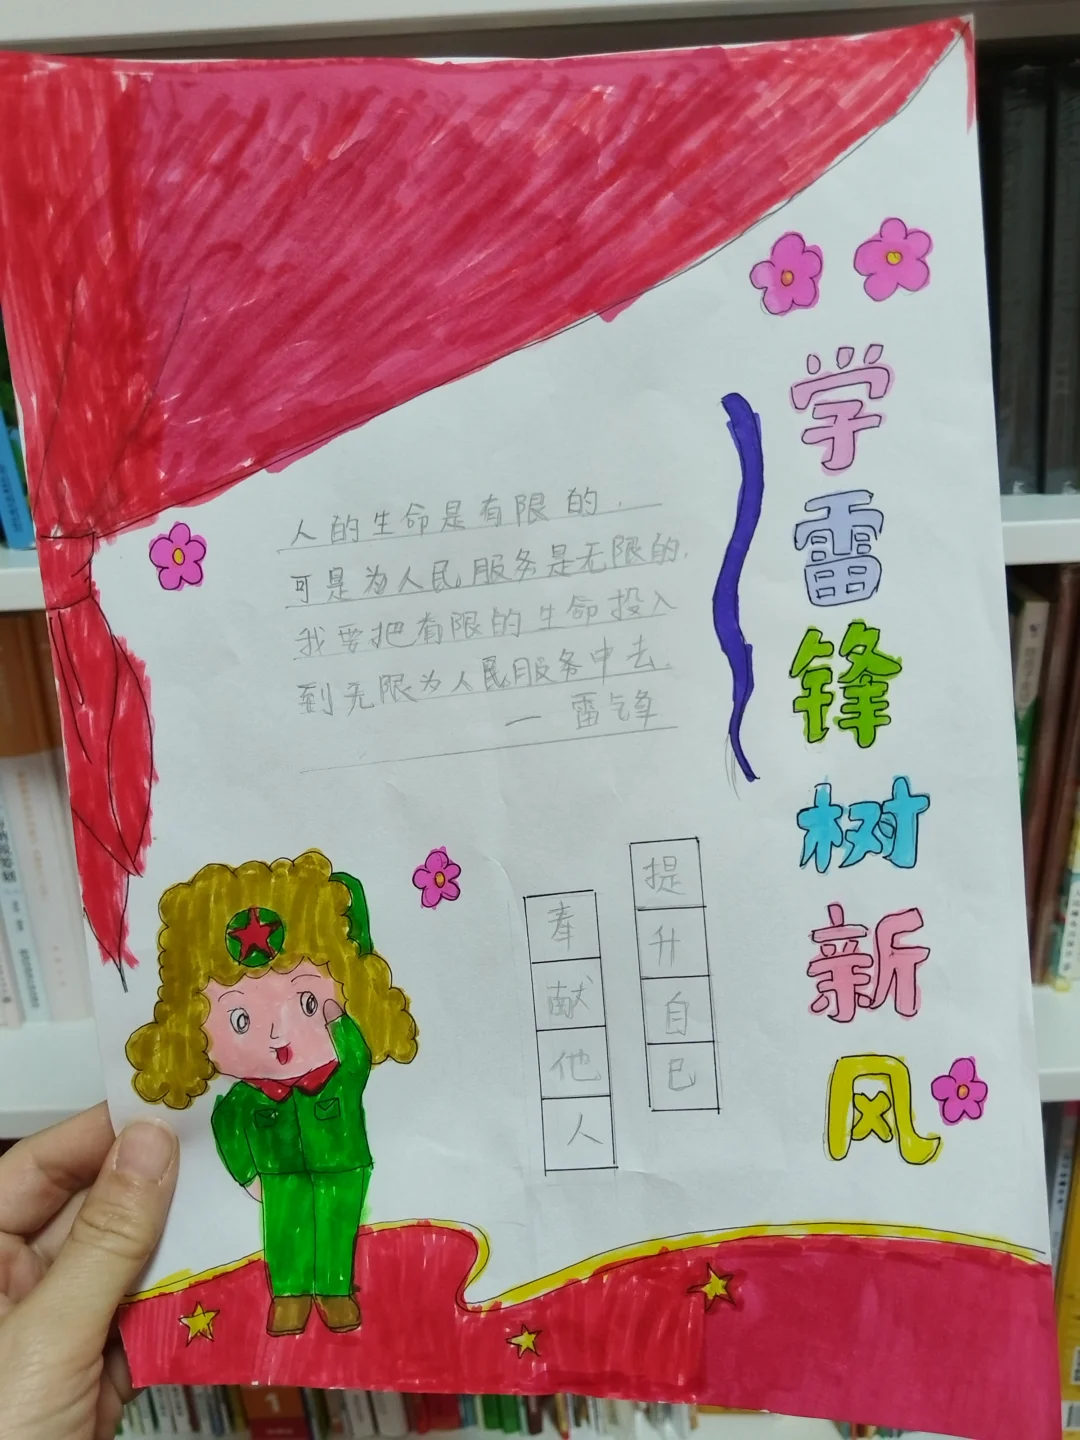 学雷锋树新风
人的生命是有限的.
可是为人民服务是无限的,
我要把有限的生命投入
到无限为人民服务中去.
— 雷锋
提升自己
奉献他人
1